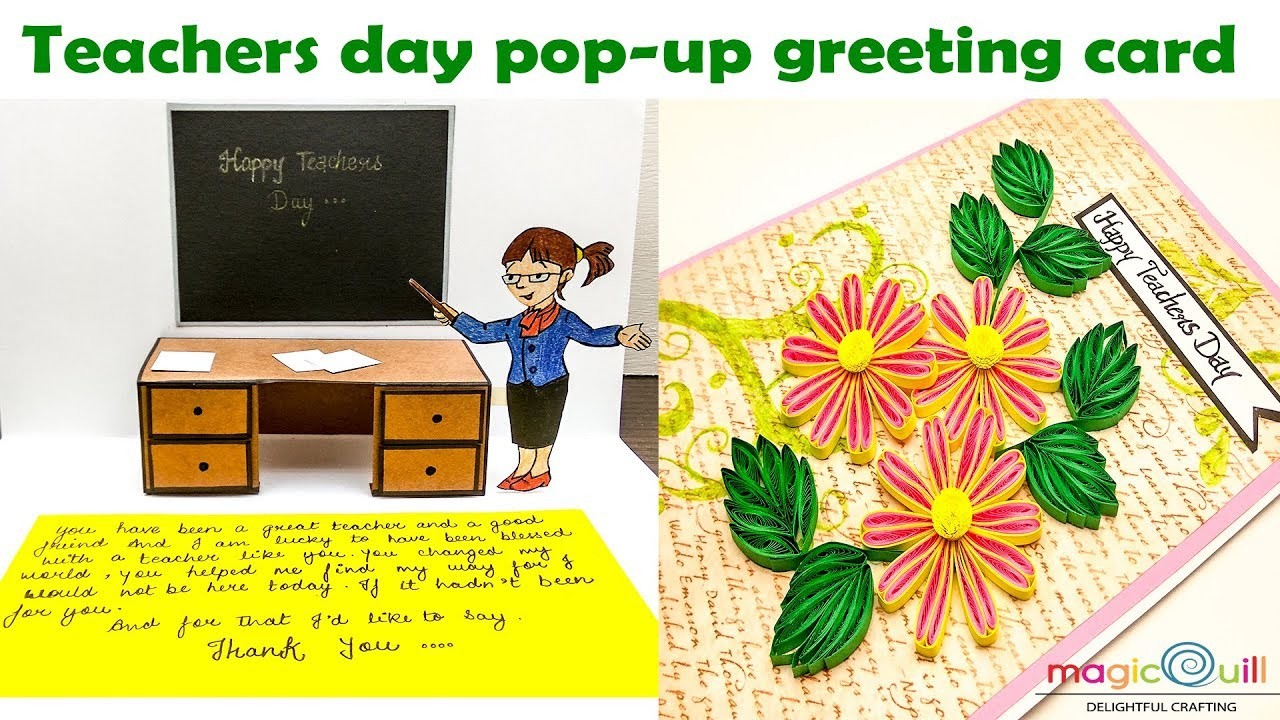 Teachers day pop-up greeting card
Happy Teachers
Day ...
You have been a great teacher and a good
friend And I am lucky to have been blessed
with a teacher like you. You changed my
world, you helped me find my way for I
would not be here today. If it hadn't been
for you.
And for that I'd like to say.
Thank You ....
Happy Teachers Day
magic Quill
DELIGHTFUL CRAFTING